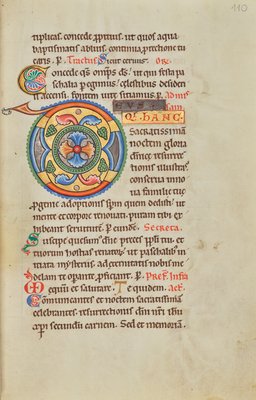 110
tiplicas. concede propicius. ut quos aqua
baptismatis abluis. continua protectione tu
earis. P. Tractus. Sicut cervus. Or.
Concede qs omips ds. ut qui festa pa
schalia peragimus. celestibus desiderii
accensi. fontem vite sitiamus. P.
DEUS
QI HANC
Sacratissimā
noctem gloria
dnice resurre
ctionis illustras.
conserva in no
va familie tue
progenie adoptionis spm quem dedisti. ut
mente et corpore renovati. puram tibi ex
hibeant servitutem. P. eundē. Secreta.
Suscipe quesum dne preces ppli tui. et
hostias
ad eternitatis nobis me
delam te operante proficiant. P. Pref.
equum et salutare. Te quidem.
Communicantes et noctem sacratissimā
celebrantes. resurrectionis dni nri ihu
xpi secundū carnem. Sed et memoriam.